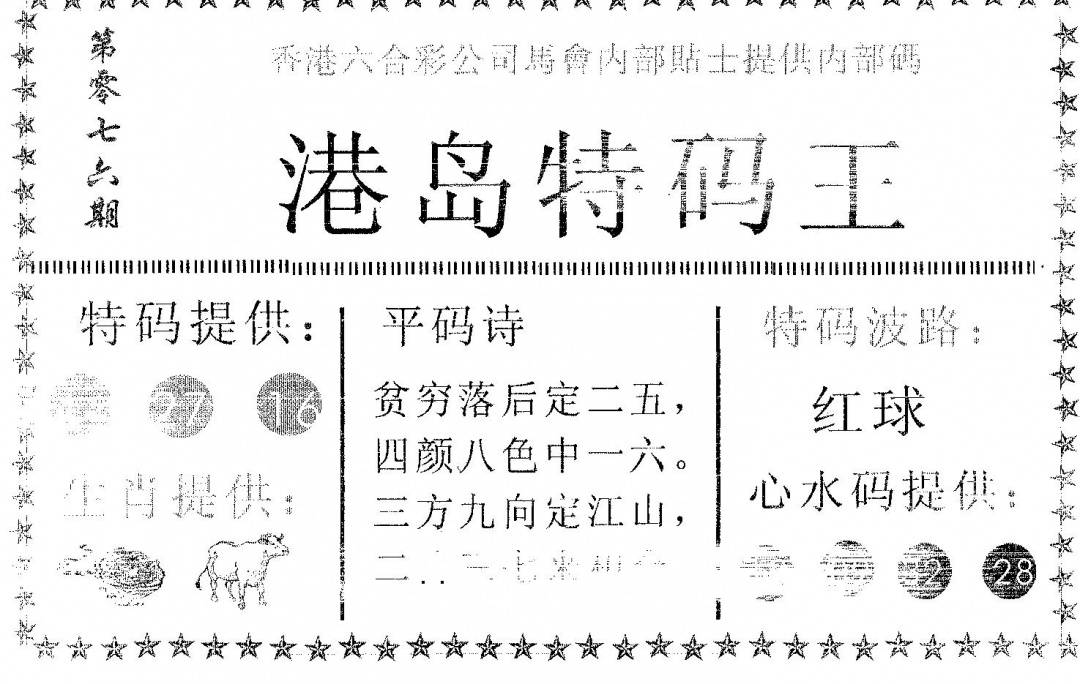 第零七六期
香港六合彩公司馬會内部貼士提供内部碼
港岛特码王
特码提供：
27 16
生肖提供：
平码诗
贫穷落后定二五，
四颜八色中一六。
三方九向定江山，
二 三七来相会
特码波路：
红球
心水码提供：
28